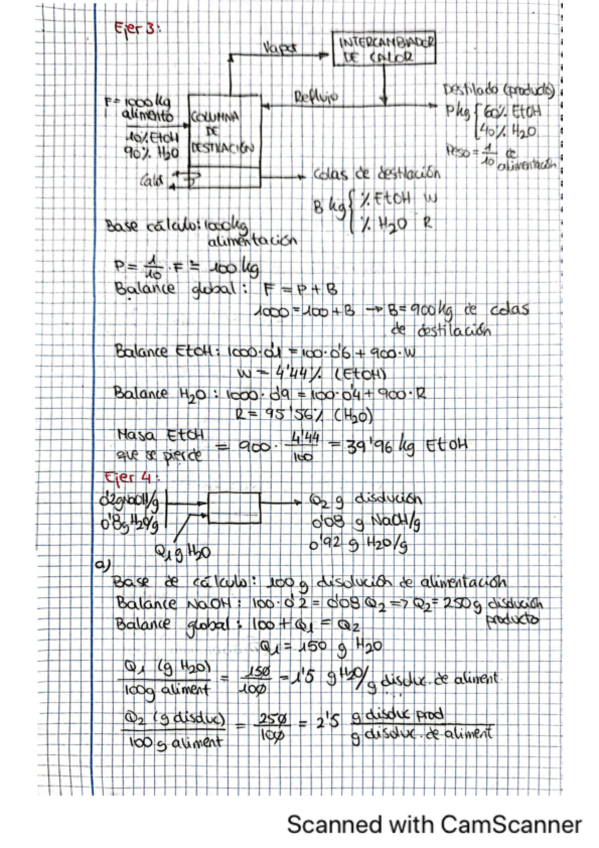 Ejer 3:
Vapor
INTERCAMBIADOR
DE CALOR
Reflujo
Destilado (producto)
F= 1000 kg
alimento
10% EtOH
90% H2O
COLUMNA
DE
DESTILACIÓN
P kg { 60% EtOH
40% H2O
Peso = 1/10 de alimentación
Calor
Colas de destilación
B kg { % EtOH W
% H2O R
Base cálculo: 1000 kg
alimentación
P = 1/10 · F = 100 kg
Balance global: F = P + B
1000 = 100 + B → B = 900 kg de colas
de destilación
Balance EtOH: 1000·0'1 = 100·0'6 + 900·W
W = 4'44% (EtOH)
Balance H2O: 1000·0'9 = 100·0'4 + 900·R
R = 95'56% (H2O)
Masa EtOH
que se pierde = 900 · 4'44/100 = 39'96 kg EtOH
Ejer 4:
0'2gNaOH/g
0'8g H2O/g
Q1 g H2O
Q2 g disolución
0'08 g NaOH/g
0'92 g H2O/g
a)
Base de cálculo: 100 g disolución de alimentación
Balance NaOH: 100·0'2 = 0'08 Q2 => Q2 = 250 g disolución
producto
Balance global: 100 + Q1 = Q2
Q1 = 150 g H2O
Q1 (g H2O)/100g aliment = 150/100 = 1'5 g H2O/g disoluc. de aliment
Q2 (g disoluc)/100 g aliment = 250/100 = 2'5 g disoluc prod/g disoluc. de aliment
Scanned with CamScanner